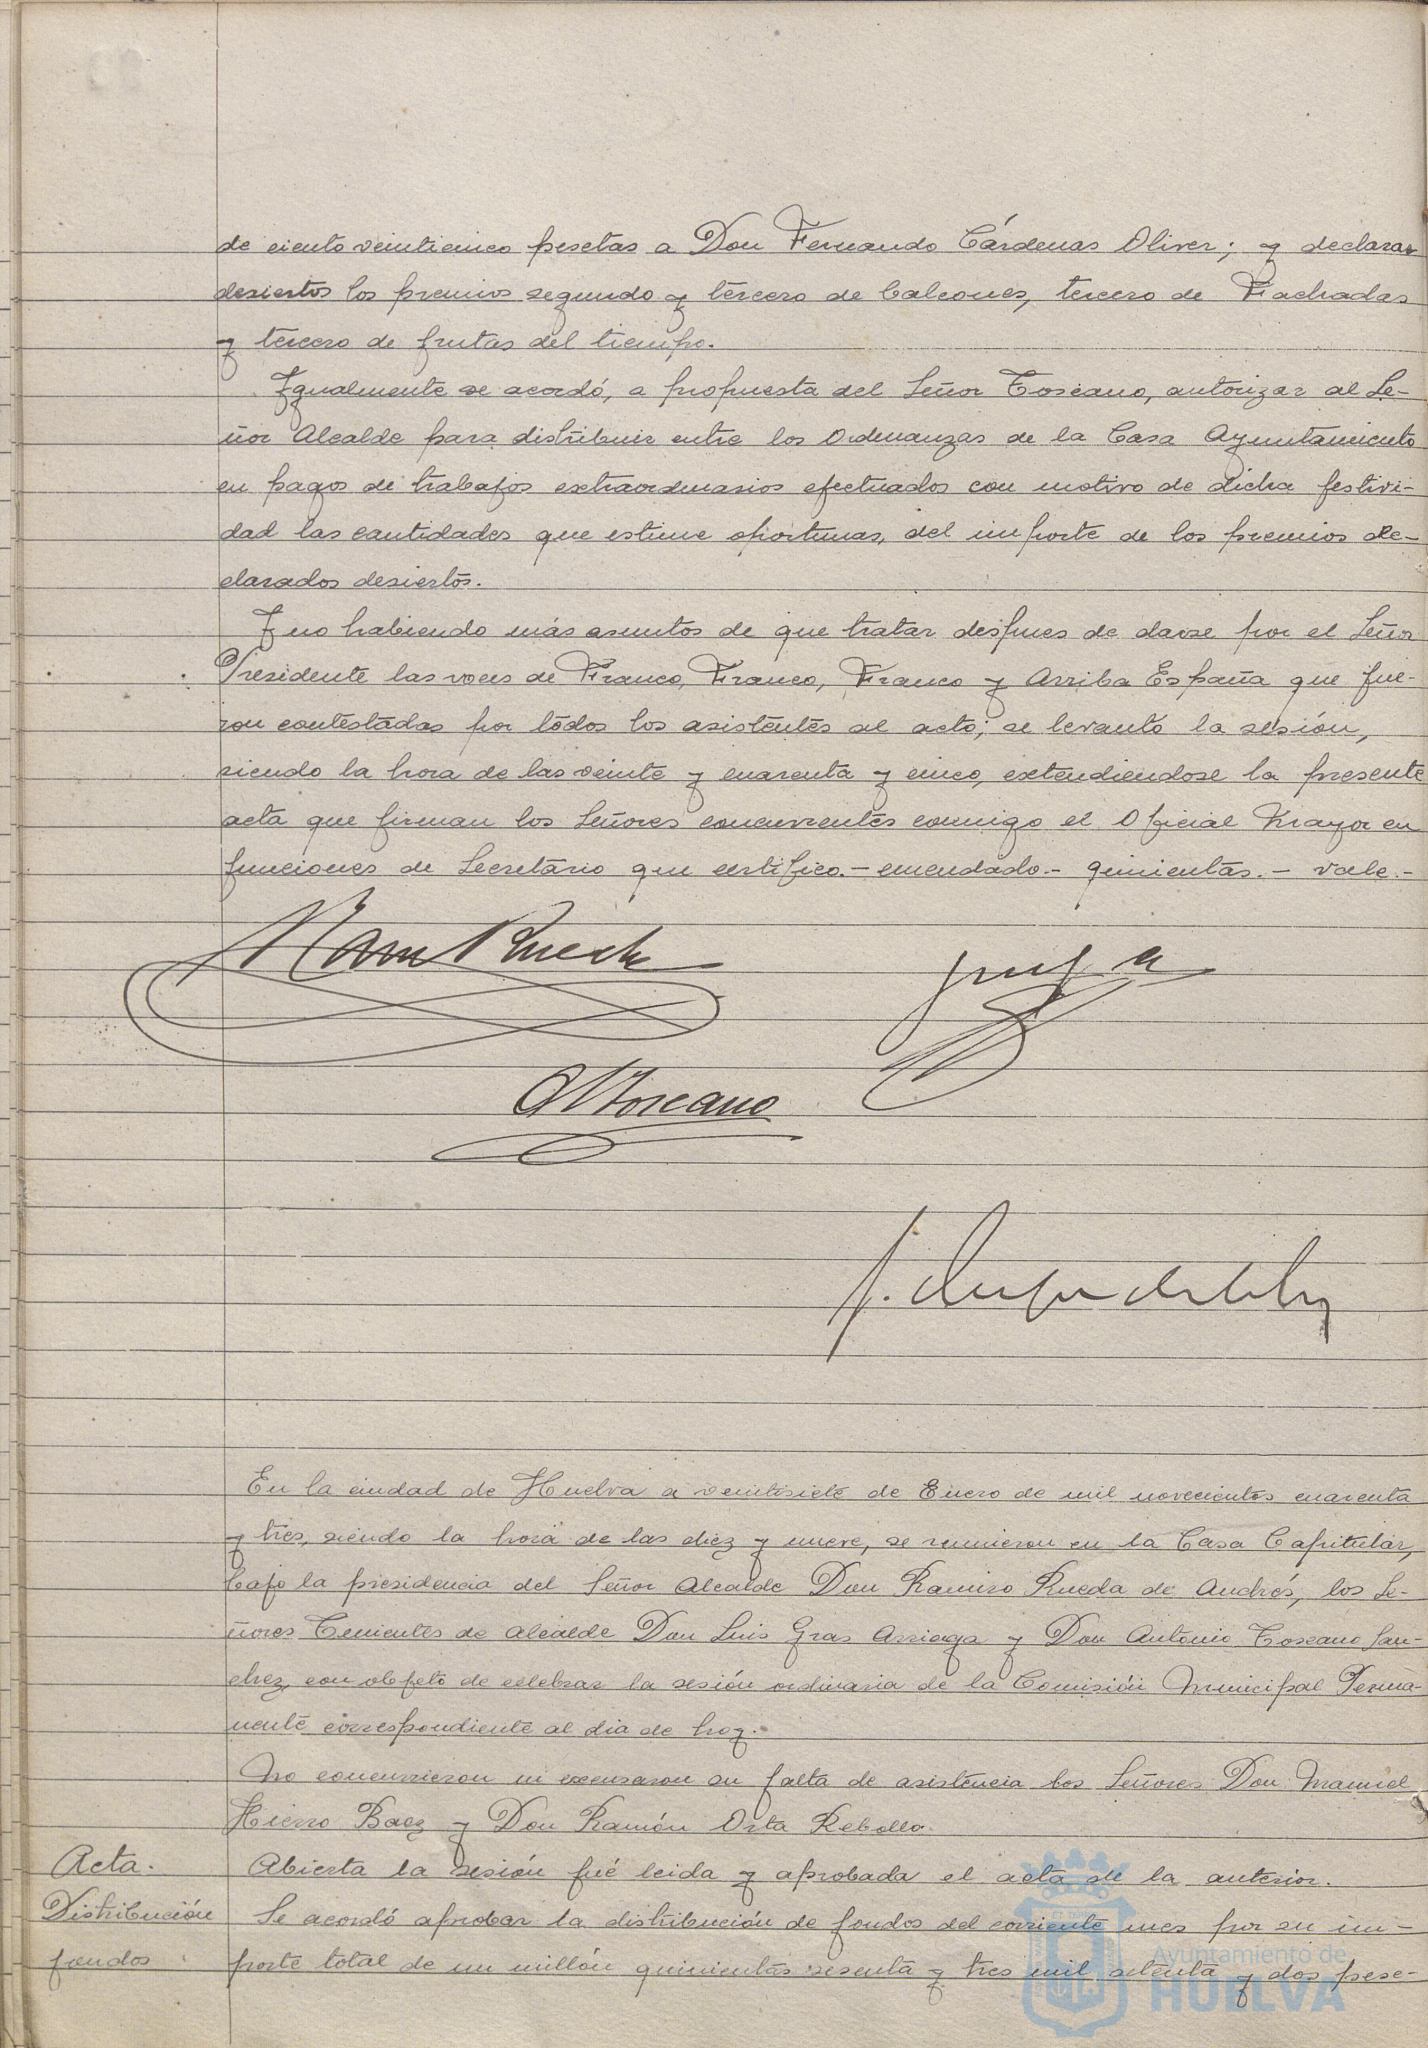 de ciento veinticinco pesetas a Don Fernando Cárdenas Oliver; y declarar
desiertos los premios segundo y tercero de balcones, tercero de Fachadas
y tercero de frutas del tiempo.
Igualmente se acordó, a propuesta del Señor Toscano, autorizar al Se-
ñor Alcalde para distribuir entre los Ordenanzas de la Casa Ayuntamiento
en pagos de trabajos extraordinarios efectuados con motivo de dicha festivi-
dad las cantidades que estime oportunas, del importe de los premios de-
clarados desiertos.
Y no habiendo más asuntos de que tratar despues de darse por el Señor
Presidente las voces de Franco, Franco, Franco y Arriba España que fue-
ron contestadas por todos los asistentes al acto; se levantó la sesión,
siendo la hora de las veinte y cuarenta y cinco, extendiendose la presente
acta que firman los Señores concurrentes conmigo el Oficial Mayor en
funciones de Secretario que certifico.- enmendado.- quinientas.- vale.-
Rueda
A Toscano
En la ciudad de Huelva a veintisiete de Enero de mil novecientos cuarenta
y tres, siendo la hora de las diez y nueve, se reunieron en la Casa Capitular,
bajo la presidencia del Señor Alcalde Don Ramiro Rueda de Andrés, los Se-
ñores Tenientes de Alcalde Don Luis Gras Arriaga y Don Antonio Toscano San-
chez, con objeto de celebrar la sesión ordinaria de la Comisión Municipal Perma-
nente correspondiente al dia de hoy.
No concurrieron ni excusaron su falta de asistencia los Señores Don Manuel
Hierro Baez y Don Ramón Orta Rebollo.
Acta. Abierta la sesión fué leida y aprobada el acta de la anterior.
Distribución Se acordó aprobar la distribución de fondos del corriente mes por su im-
fondos porte total de un millón quinientas sesenta y tres mil setenta y dos pese-
Ayuntamiento de
HUELVA